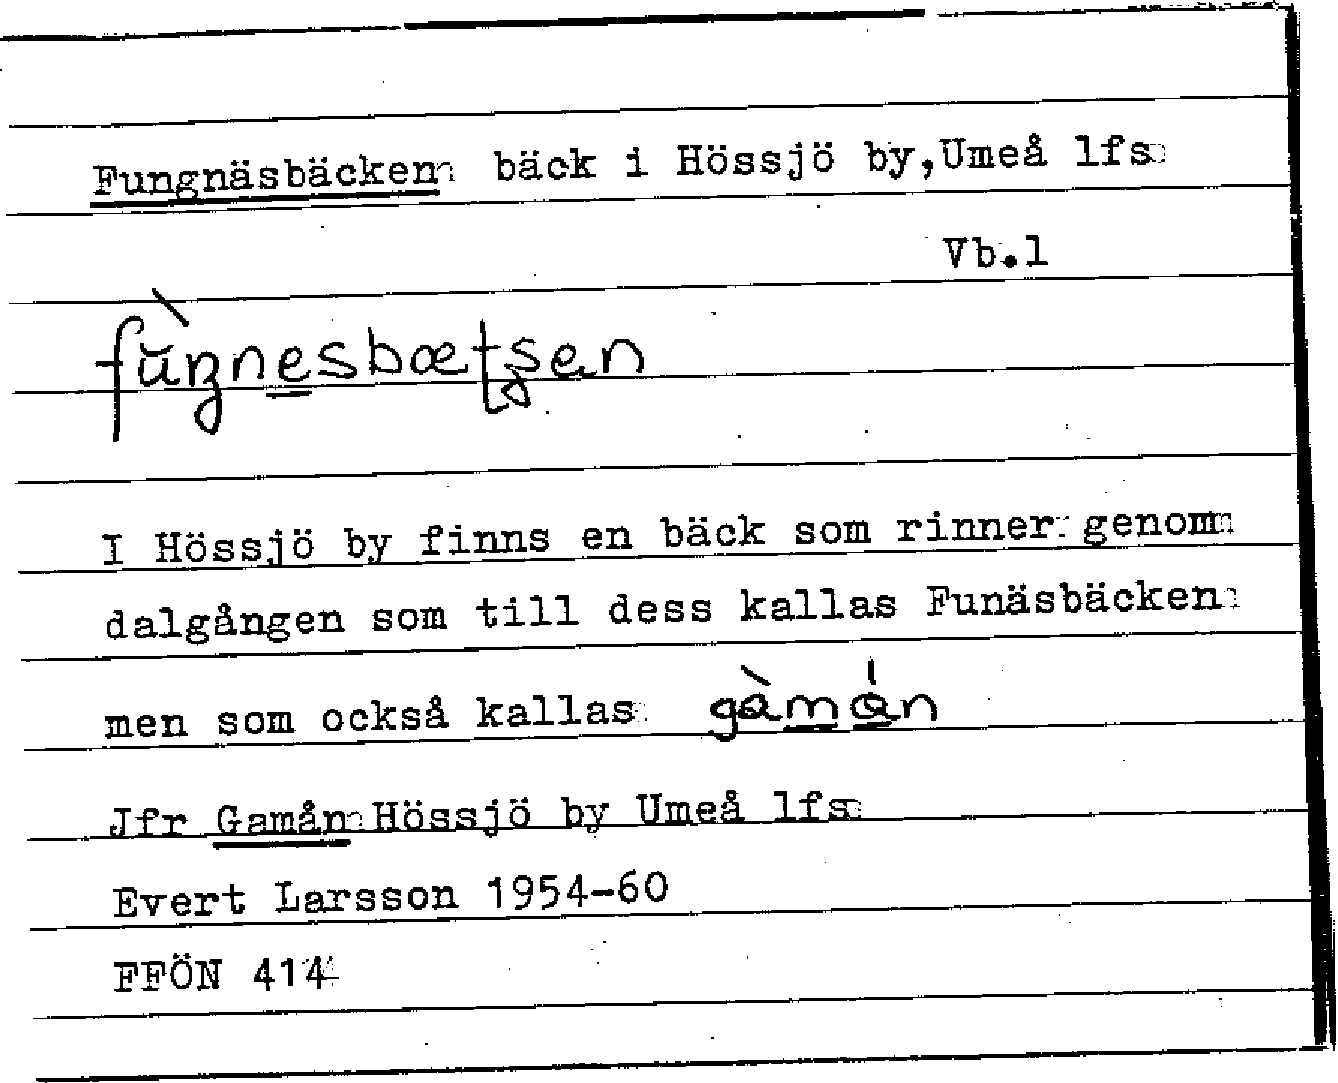 Fungnäsbäcken bäck i Hössjö by,Umeå lfs
Vb.1
fùŋnesbætʂen
I Hössjö by finns en bäck som rinner genom
dalgången som till dess kallas Funäsbäcken
men som också kallas gàmán
Jfr Gamån Hössjö by Umeå lfs
Evert Larsson 1954-60
FFÖN 414